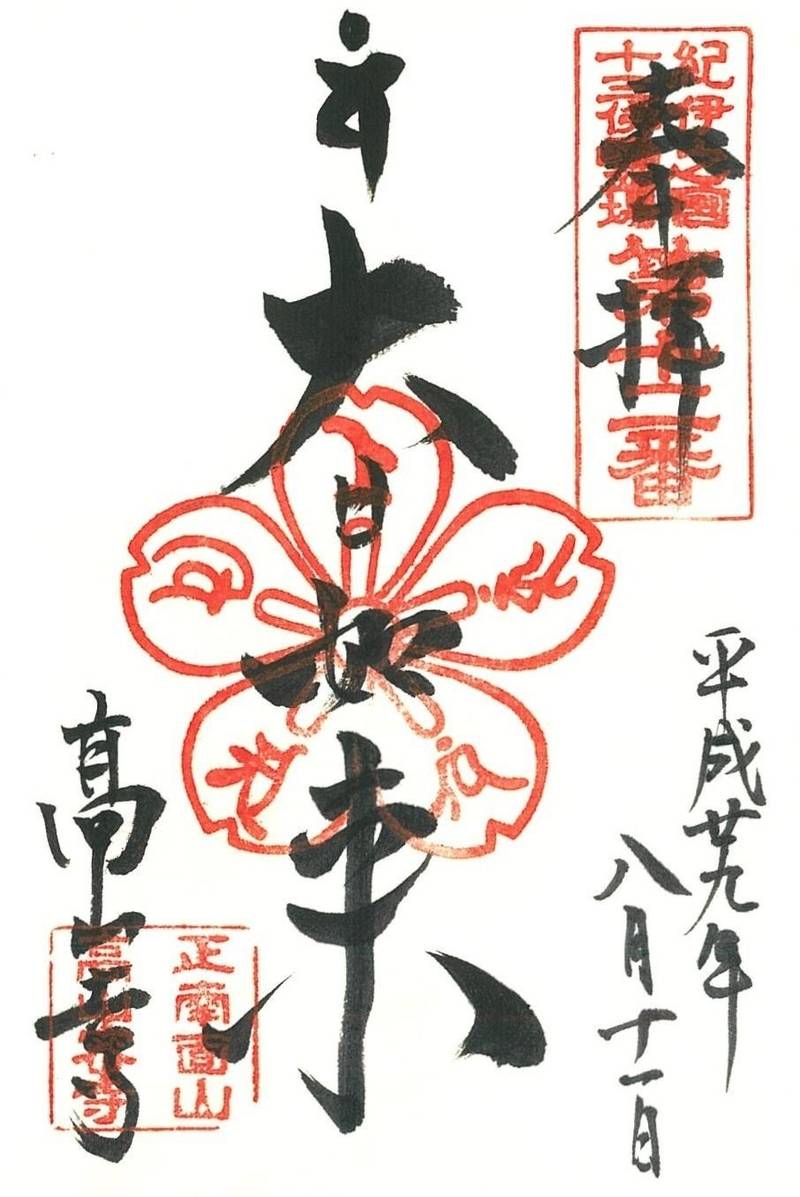 奉拝
紀伊之國
十三佛霊場
第十二番
平成廿九年
八月十一日
大日如来
正南面山
高山寺